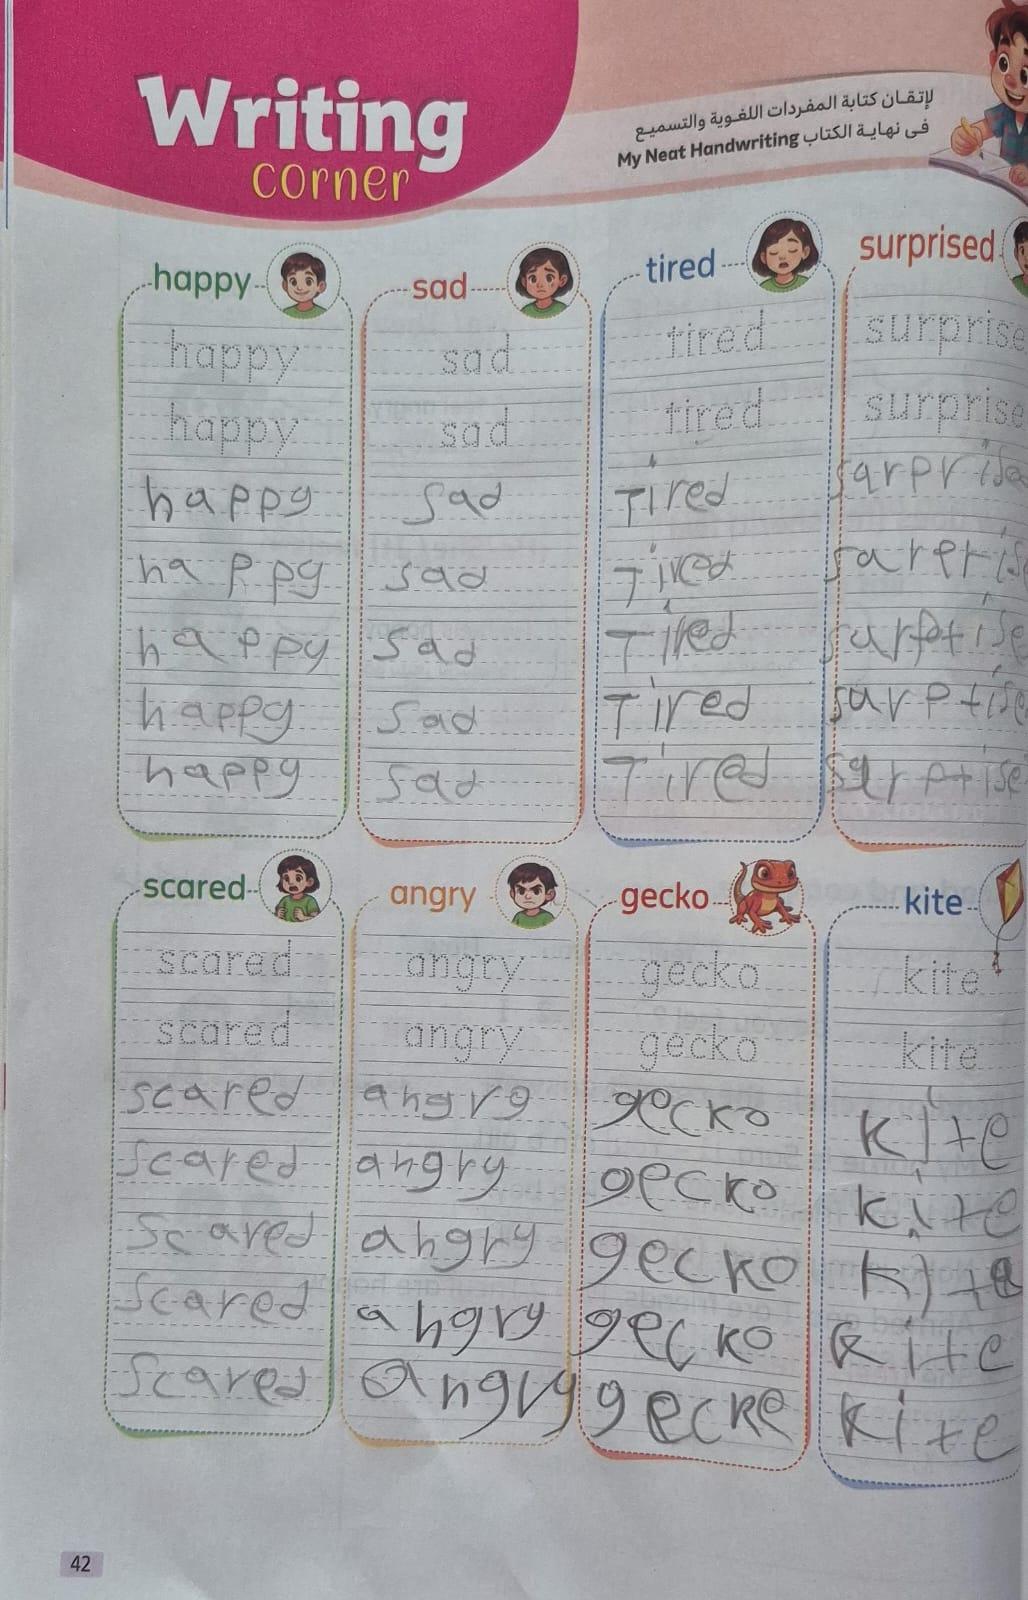 Writing
corner
لإتقـان كتابة المفردات اللغـوية والتسميـع
فى نهايـة الكتاب My Neat Handwriting
happy
happy
happy
happy
ha p pg
happy
happy
happy
sad
sad
sad
sad
sad
sad
sad
sad
tired
tired
tired
Tired
Tired
Tired
Tired
Tired
surprised
surprise
surprise
sarprise
sareris
surptise
sarptise
surptise
scared
scared
scared
scared
scared
scared
scared
scared
angry
angry
angry
angrg
angry
angry
angry
angry
gecko
gecko
gecko
gecko
gecko
gecko
gecko
gecke
kite
kite
kite
kite
kite
kite
kite
kite
42